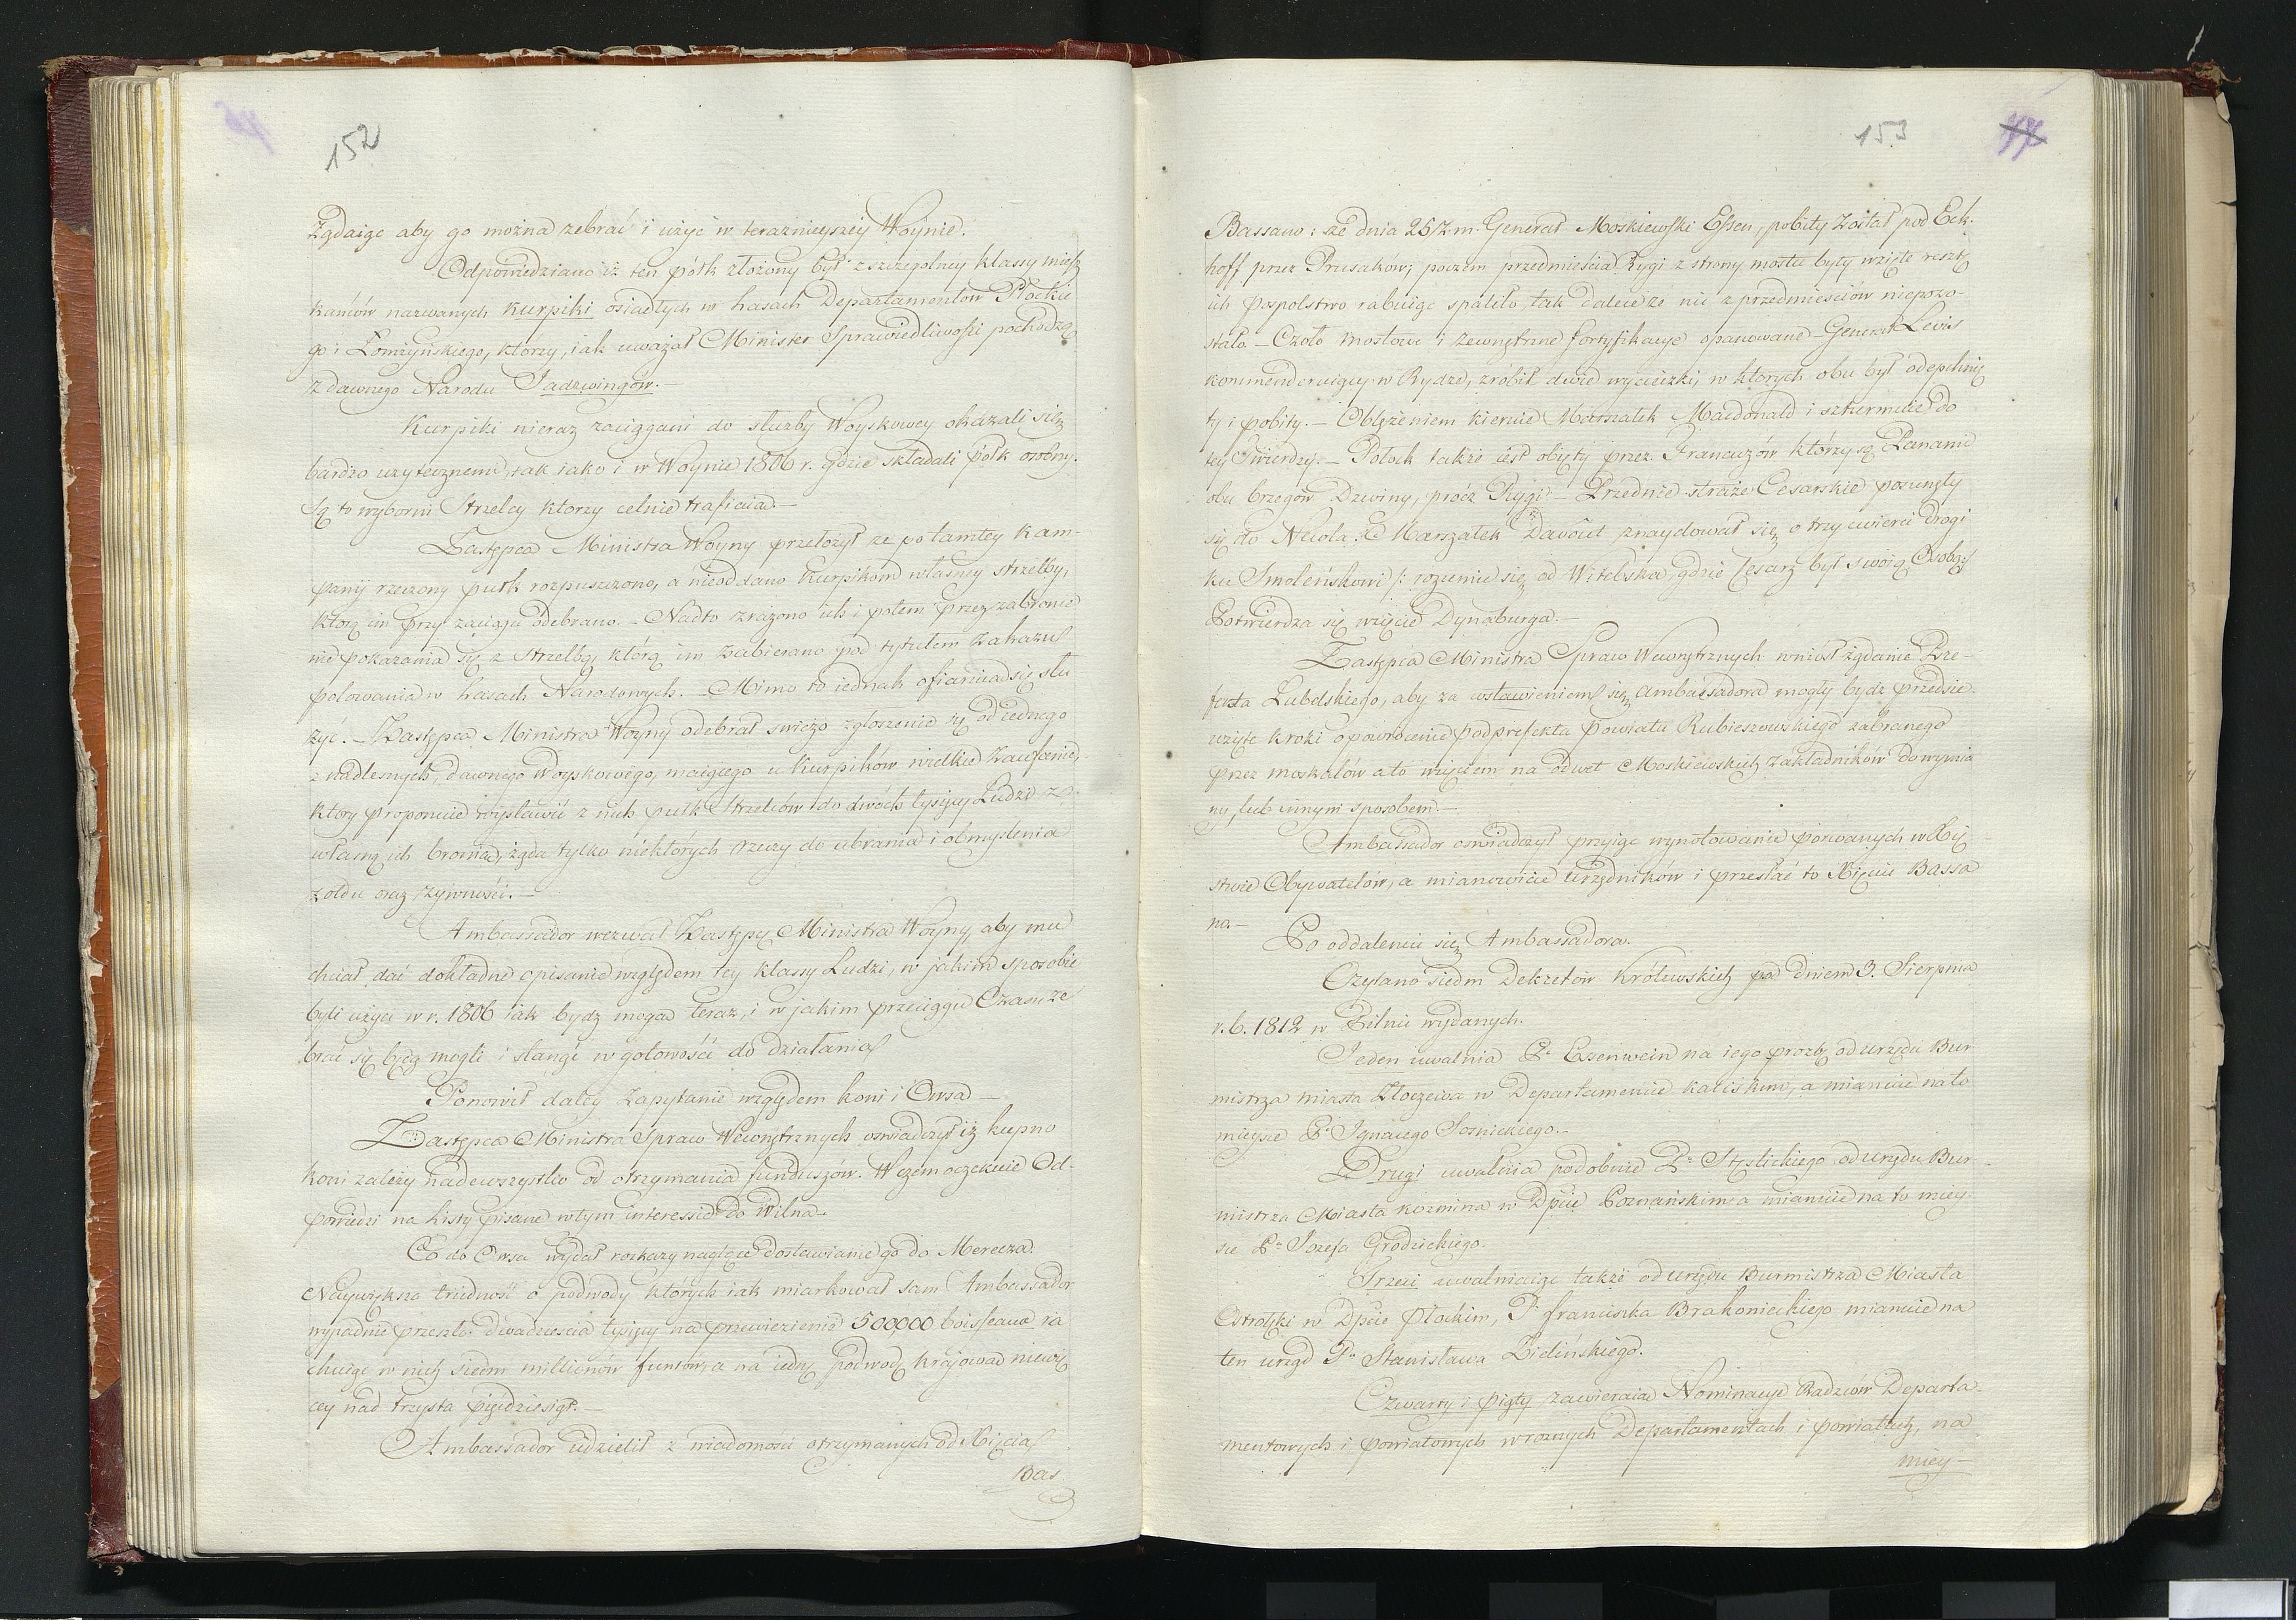 152
żądaiąc aby go można zebrać i użyć w teraznieyszéy Woynie.
Odpowiedziano iż ten półk złożony był z szczegolney klassy miesz
kańców nazwanych Kurpiki osiadłych w Lasach Departamentów Płockie
go i Łomżyńskiego, którzy, iak uważał Minister Sprawiedliwości pochodzą
z dawnego Narodu Jadzwingów.—
Kurpiki nieraz zaciągani do służby Woyskowey okazali się
bardzo użytecznemi, tak iako i w Woynie 1806 r. gdzie składali półk osobny.
Są to wyborni Strzelcy ktorzy celnie trafiaią.—
Zastępca Ministra Woyny przełożył że po tamtey Kam-
panij rzeczony pułk rozpuszczono, a nieoddano Kurpikom własney strzelby,
którą im przy zaciągu odebrano.— Nadto zrażono ich i potem przez zabronie
nie pokazania się z strzelbą, którą im zabierano pod tytułem zakazu
polowania w Lasach Narodowych.— Mimo to iednak ofiaruią się słu-
żyć.— Zastępca Ministra Woyny odebrał swieżo zgłoszenie się od iednego
z nadlesnych, dawnego Woyskowego, maiącego u Kurpików wielkie Zaufanie,
ktory proponuie wystawić z nich pułk Strzelców do dwóch tysięcy Ludzi z
własną ich bronią, żąda tylko niektórych rzeczy do ubrania i obmyślenia
żołdu oraz żywności.—
Ambassador wezwał Zastępcę Ministra Woyny, aby mu
chciał dać dokładne opisanie względem tey klassy Ludzi, w jakim sposobie
byli użyci w r. 1806 iak bydź mogą teraz, i w jakim przeciągu Czasu ze
brać się będą mogli i stanąć w gotowości do działania
Ponowił daléy zapytanie względem koni i Owsa—
Zastępca Ministra Spraw Wewnętrznych oswiadczył iż kupno
koni zależy nadewszystko od otrzymania funduszów. Wczem oczekuie Od-
powiedzi na Listy pisane w tym interessie do Wilna.
Co do Owsa wydał rozkazy naglące dostawianie go do Merecza.
Naywiększa trudność o podwody których iak miarkował sam Ambassador
wypadnie przeszło dwadzieścia tysięcy na przewiezienie 500,000 boisseaux ra
chuiąc w nich siedm millionów funtów, a na iednę podwodę krajową niewię
cey nad trzysta pięćdziesiąt.—
Ambassador udzielił z wiadomości otrzymanych od Xięcia
Bas
153
Bassano: że dnia 25 z. m. Generał Moskiewski Essen, pobity został pod Eck-
hoff przez Prusaków; poczem przedmieścia Rygi z strony mostu były wzięte resztę
ich pospolstwo rabuiąc spaliło, tak dalece że nic z przedmieściów niepozo-
stało.— Czoło mostowe i zewnętrzne fortyfikacye opanowane— Generał Levis
kommenderuiący w Rydze, zrobił dwie wycieczki, w których obu był odepchnię
ty i pobity.— Oblężeniem kieruie Marszałek Macdonald i szturmuie do
tey Twierdzy.— Połock także iest obięty przez Francuzów którzy są Panami
obu brzegów Dzwiny, prócz Rygi.— Przednie straże Cesarskie posunęły
się do Newla. Marszałek Davout znaydował się o trzy cwierci drogi
ku Smoleńskowi /: rozumie się od Witebska, gdzie Cesarz był swoią Osobą:/
Potwierdza się wzięcie Dynaburga.—
Zastępca Ministra Spraw Wewnętrznych wniósł żądanie Pre-
fekta Lubelskiego, aby za wstawieniem się Ambassadora mogły bydz przedsie-
wzięte kroki o powrócenie podprefekta Powiatu Rubieszowskiego zabranego
przez moskalów a to wzięciem na odwet Moskiewskich zakładników do wymia
ny, lub innym sposobem.—
Ambassador oswiadczył przyiąc wynotowanie porwanych w Xię
stwie Obywatelów, a mianowicie Urzędników i przesłać to Xięciu Bassa
no.—
Po oddaleniu się Ambassadora.
Czytano siedm Dekretów Królewskich pod dniem 3. Sierpnia
r. b. 1812 w Pilnic wydanych.
Jeden uwalnia P. Essenwein na iego prozbę od urzędu Bur
mistrza miasta Złoczewa w Departamencie Kaliskim, a mianuie na to
mieysce P. Ignacego Sosnickiego.—
Drugi uwalnia podobnie P. Stęslickiego od urzędu Bur-
mistrza Miasta Kozmina w Dpcie Poznańskim a mianuie na to miey-
sce P. Jozefa Grodzickiego.
Trzeci uwalniaiąc także od urzędu Burmistrza Miasta
Ostrołęki w Dpcie Płockim, P. Franciszka Brakonieckiego mianuie na
ten urząd P. Stanisława Zielińskiego.
Czwarty i piąty zawieraią Nominacye Radzców Departa-
mentowych i powiatowych w roznych Departamentach i powiatach, na
miey—